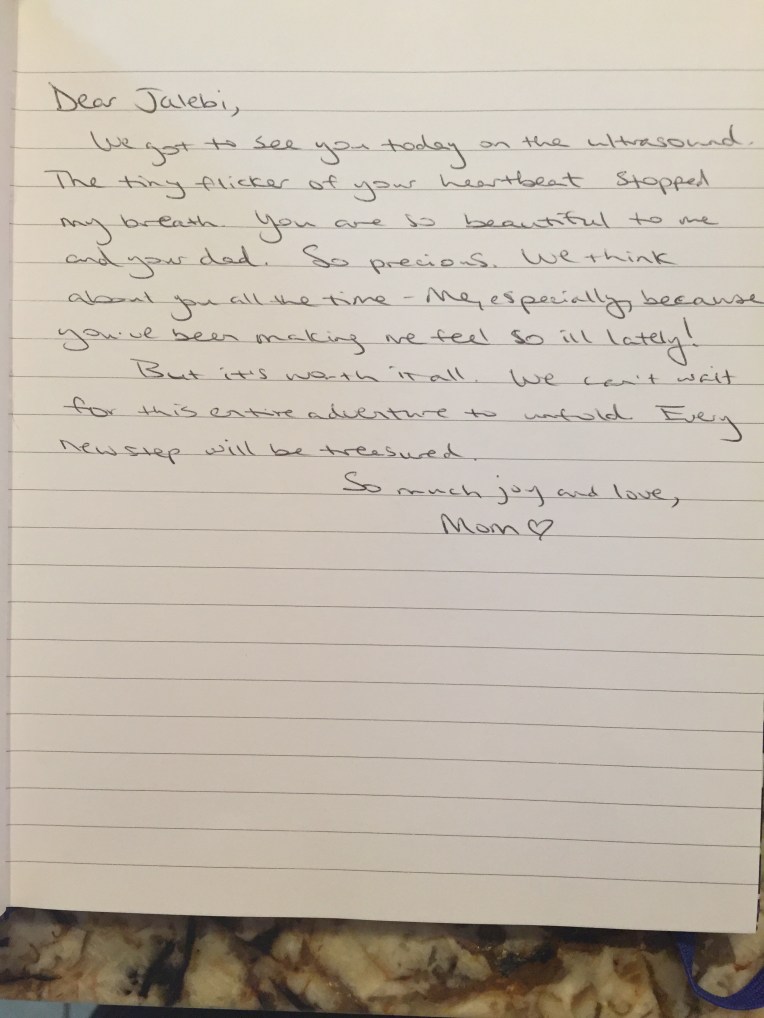 Dear Jalebi,
We got to see you today on the ultrasound.
The tiny flicker of your heartbeat stopped
my breath. You are so beautiful to me
and your dad. So precious. We think
about you all the time - Me, especially, because
you've been making me feel so ill lately!
But it's worth it all. We can't wait
for this entire adventure to unfold. Every
new step will be treasured.
So much joy and love,
Mom ♡